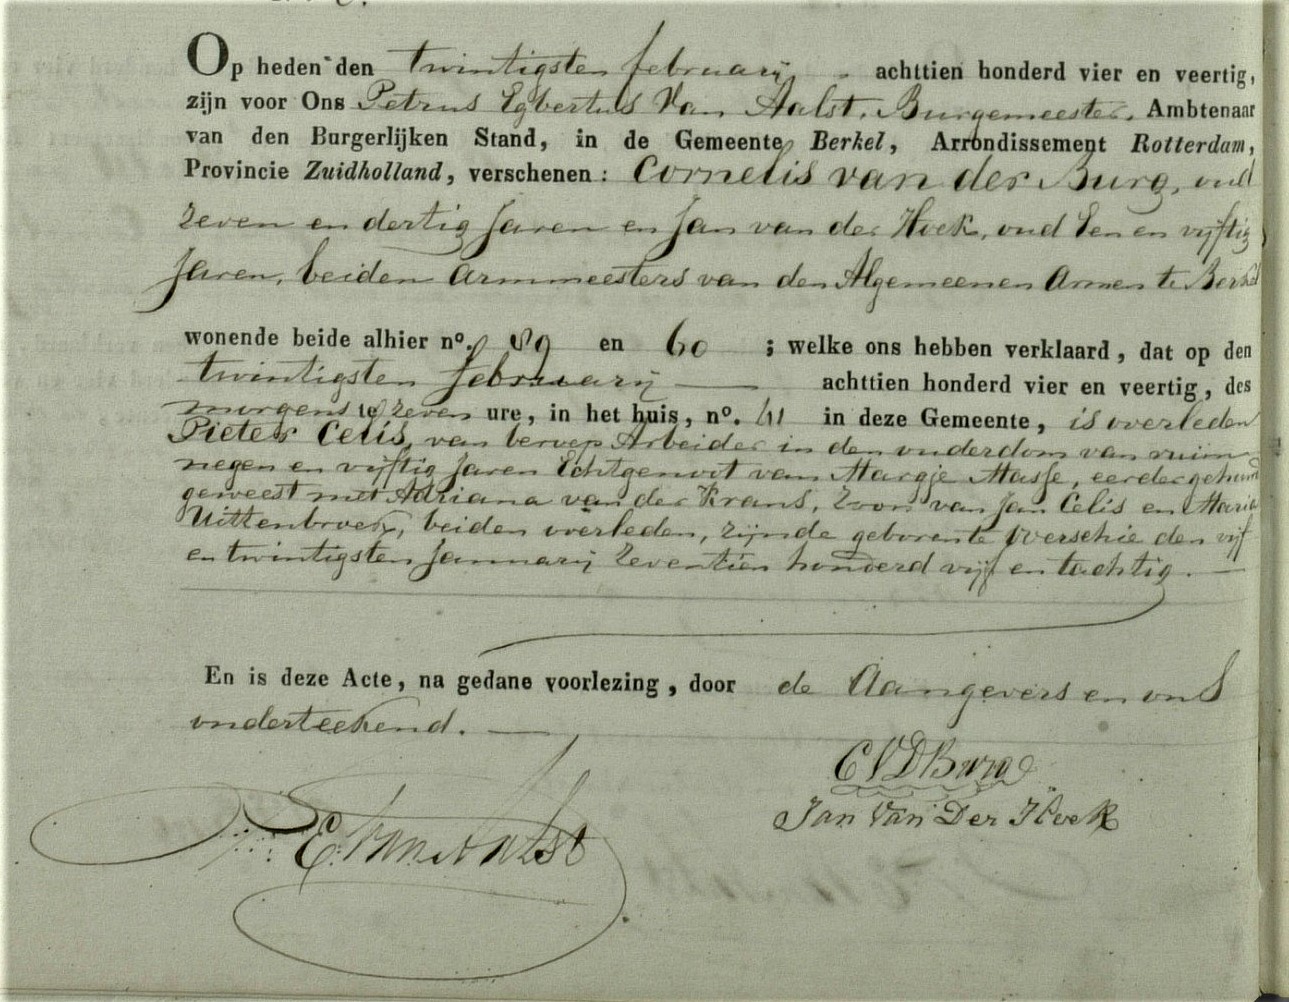 Op heden den twintigsten february achttien honderd vier en veertig,
zijn voor Ons Petrus Egbertus Van Aalst, Burgemeester, Ambtenaar
van den Burgerlijken Stand, in de Gemeente Berkel, Arrondissement Rotterdam,
Provincie Zuidholland, verschenen: Cornelis van der Burg, oud
zeven en dertig Jaren en Jan van der Hoek, oud Een en vijftig
Jaren, beiden Armmeesters van den Algemeenen Armen te Berkel
wonende beide alhier no. 89 en 60 ; welke ons hebben verklaard, dat op den
twintigsten february achttien honderd vier en veertig, des
morgens te zeven ure, in het huis, no. in deze Gemeente, is overleden
Pieter Celis, van beroep Arbeider in den ouderdom van ruim
negen en vijftig Jaren Echtgenoot van Margje Masse, eerder gehuwd
geweest met Adriana van der Krans, Zoon van Jan Celis en Maria
Uittenbroek, beiden overleden, zijnde geboren te Overschie den vijf
en twintigsten January Zeventien honderd vijf en tachtig.
En is deze Acte, na gedane voorlezing, door de Aangevers en ons
onderteekend.
C V D Burg
Jan Van Der Hoek
P: E. Van Aalst